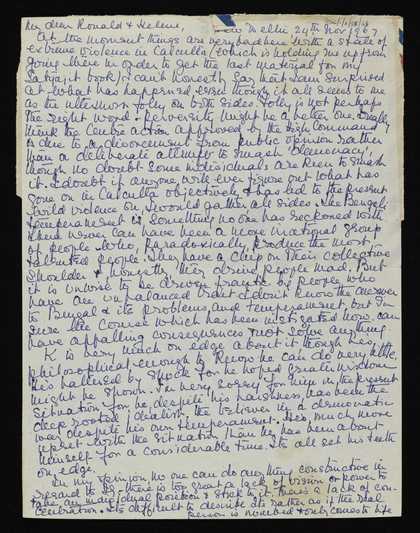 My dear Ronald & Helene, New Delhi 24th Nov 1967
At the moment things are very bad here with a state of
extreme violence in Calcutta (which is holding me up from
going there in order to get the last material for my
Satyajit book). I can't honestly say that I am surprised
at what has happened even though it all seems to me
as the uttermost folly on both sides. Folly is not perhaps
the right word. Perversity might be a better one. I really
think the Centre action approved by the High Command
is due to a divorcement from public opinion rather
than a deliberate attempt to smash "democracy",
though no doubt some individuals are keen to smash
it. I doubt if anyone will ever figure out what has
gone on in Calcutta objectively & has led to the present
wild violence on all sides. The Bengali
temperament is something no one has reckoned with
There never can have been a more irrational group
of people who, paradoxically, produce the most
talented people. They have a chip on their collective
shoulder & honestly they drive people mad. But
it is unwise to be driven frantic by people who
have an unbalanced I don't know the answer
to Bengal & its problems and temperament, but I'm
sure the course which has been instigated now can
have appalling consequences & not solve anything.
K is very much on edge about it though he's
philosophical enough to know he can do very little.
He is shattered by for he hoped greater wisdom
might be shown. I'm very sorry for him in the present
situation for he, despite his harshness, has been the
deep rooted idealist, the believer in a democratic
way despite his own temperament. He's much more
upset with the situation than he has been about
himself for a considerable time. Its all set his teeth
on edge.
In my opinion no one can do anything constructive in
regard to it - there is too great a lack of vision or power to
take an individual position & stick to it. There's a lack of con-
centration. Its difficult to describe. Its rather as if the real
person is numbed & only comes to life